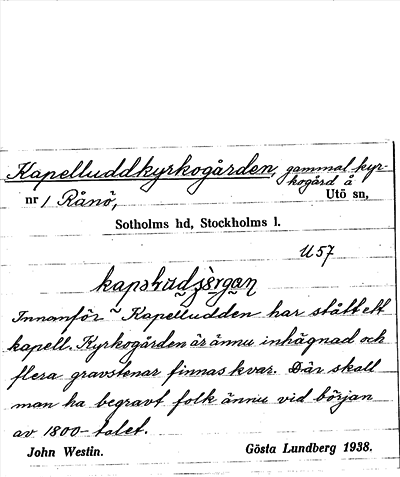 Kapelluddkyrkogården, gammal kyr-
kogård å
nr 1 Rånö, Utö sn,
Sotholms hd, Stockholms l.
U57
Innanför ~ Kapelludden har stått ett
kapell. Kyrkogården är ännu inhägnad och
flera gravstenar finnas kvar. Där skall
man ha begravt folk ännu vid början
av 1800-talet.
John Westin. Gösta Lundberg 1938.